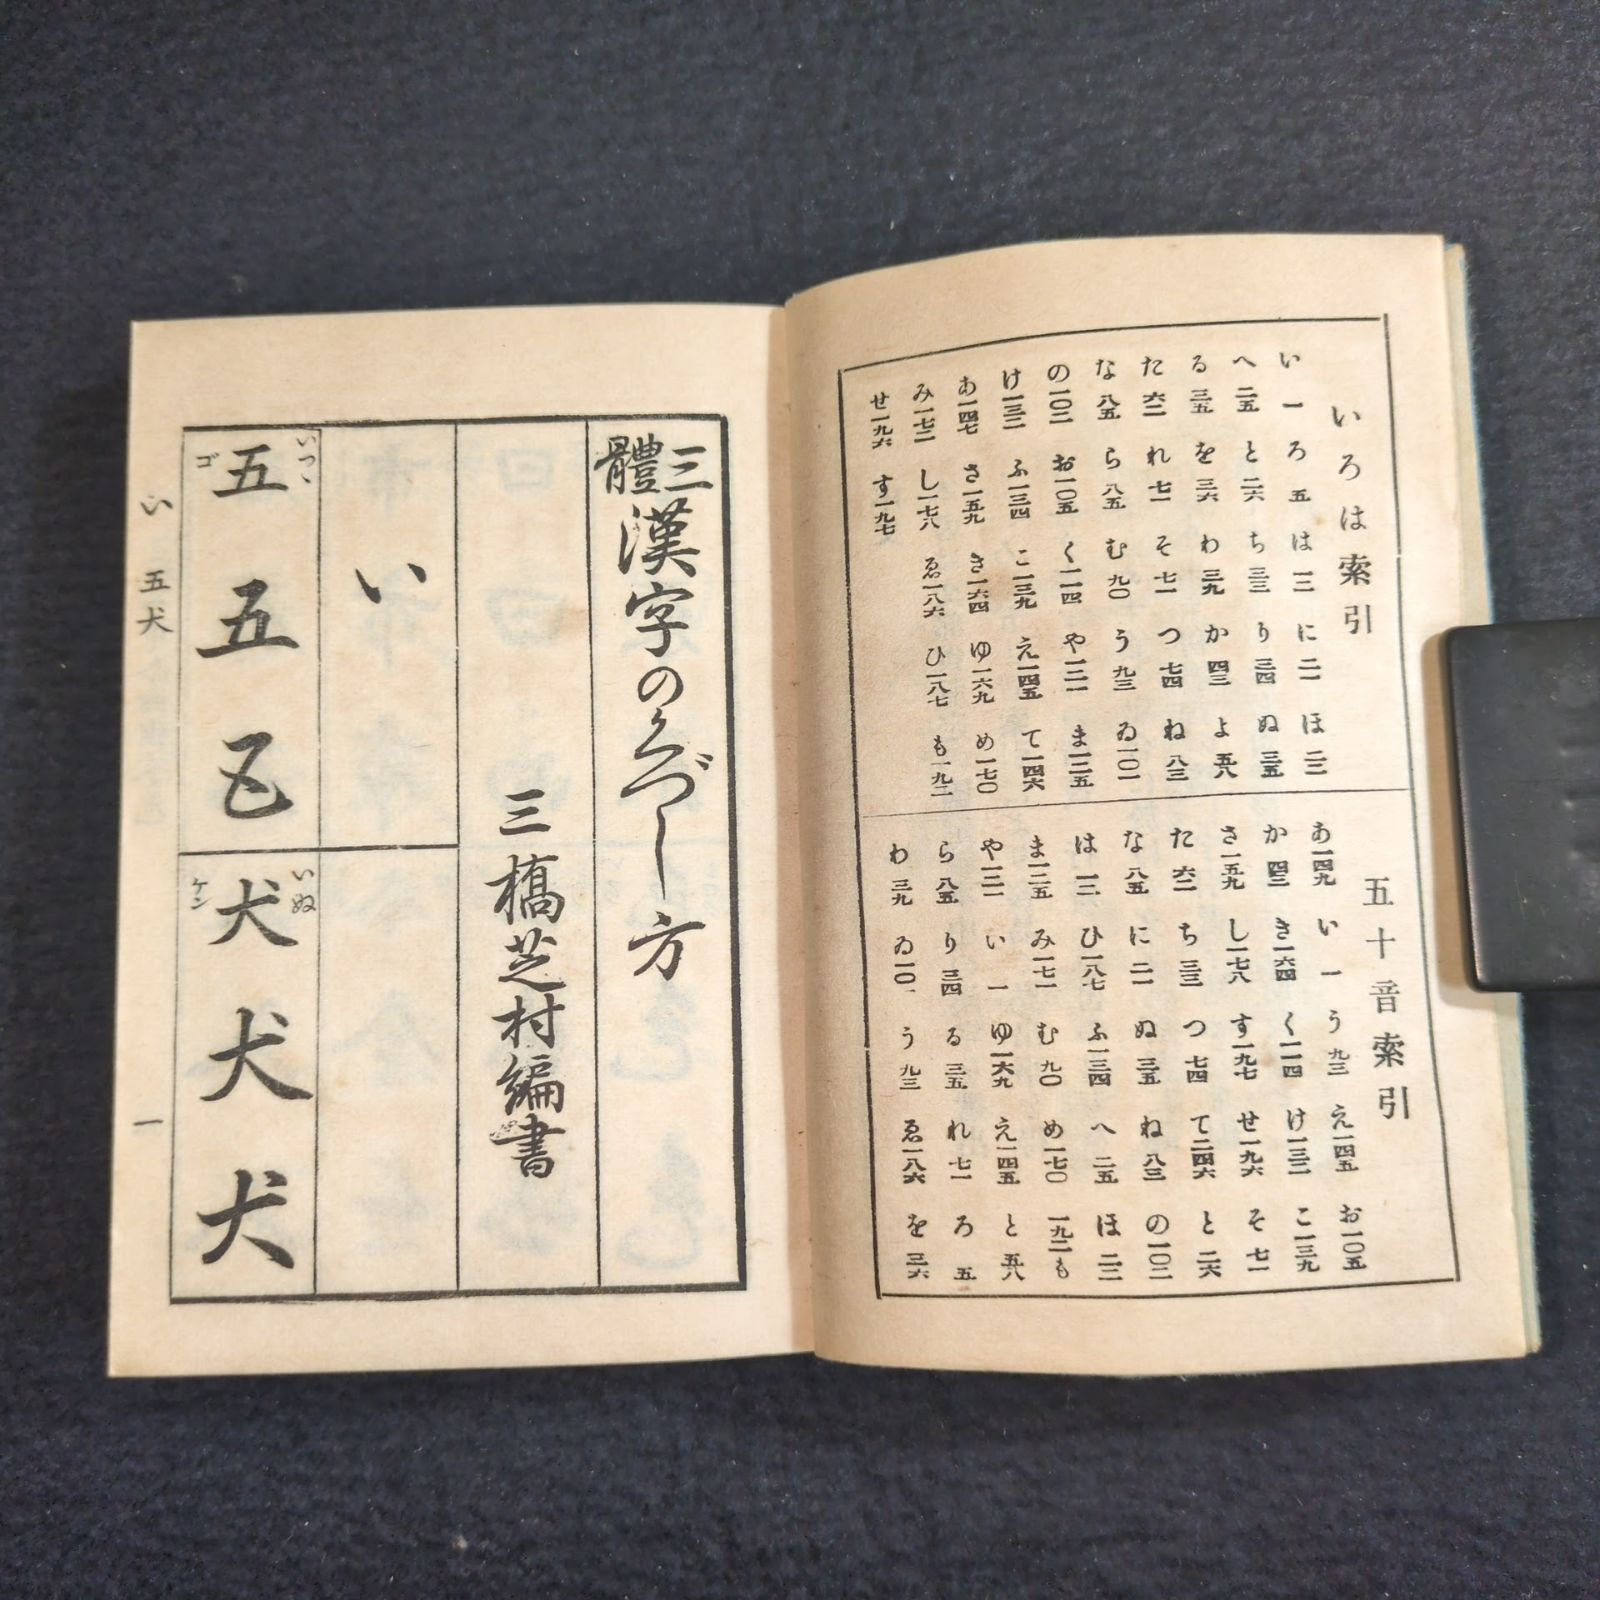 いろは索引
い一 ろ五 は一二 に二一 ほ二二
へ二五 と二六 ち三三 り三四 ぬ三五
る三五 を三六 わ三九 か四三 よ五八
た六二 れ七一 そ七一 つ七四 ね八三
な八五 ら八五 む九〇 う九三 ゐ一〇一
の一〇二 お一〇五 く一一四 や一二一 ま一二五
け一三二 ふ一三四 こ一三九 え一四五 て一四六
あ一四七 さ一五九 き一六四 ゆ一六九 め一七〇
み一七二 し一七八 ゑ一八六 ひ一八七 も一九二
せ一九六 す一九七
五十音索引
あ一四九 い一 う九三 え一四五 お一〇五
か四三 き一六四 く一一四 け一三二 こ一三九
さ一五九 し一七八 す一九七 せ一九六 そ七一
た六二 ち三三 つ七四 て二四六 と二六
な八五 に二一 ぬ三五 ね八三 の一〇二
は一二 ひ一八七 ふ一三四 へ二五 ほ二二
ま一二五 み一七一 む九〇 め一七〇 一九二も
や一二一 い一 ゆ一六九 え一四五 と五八
ら八五 り三四 る三五 れ七一 ろ五
わ三九 ゐ一〇一 う九三 ゑ一八六 を三六
三體漢字のくづし方
三橋芝村編書
い
いつゝ
五五五
ゴ
いぬ
犬犬犬
ケン
い 五犬 一